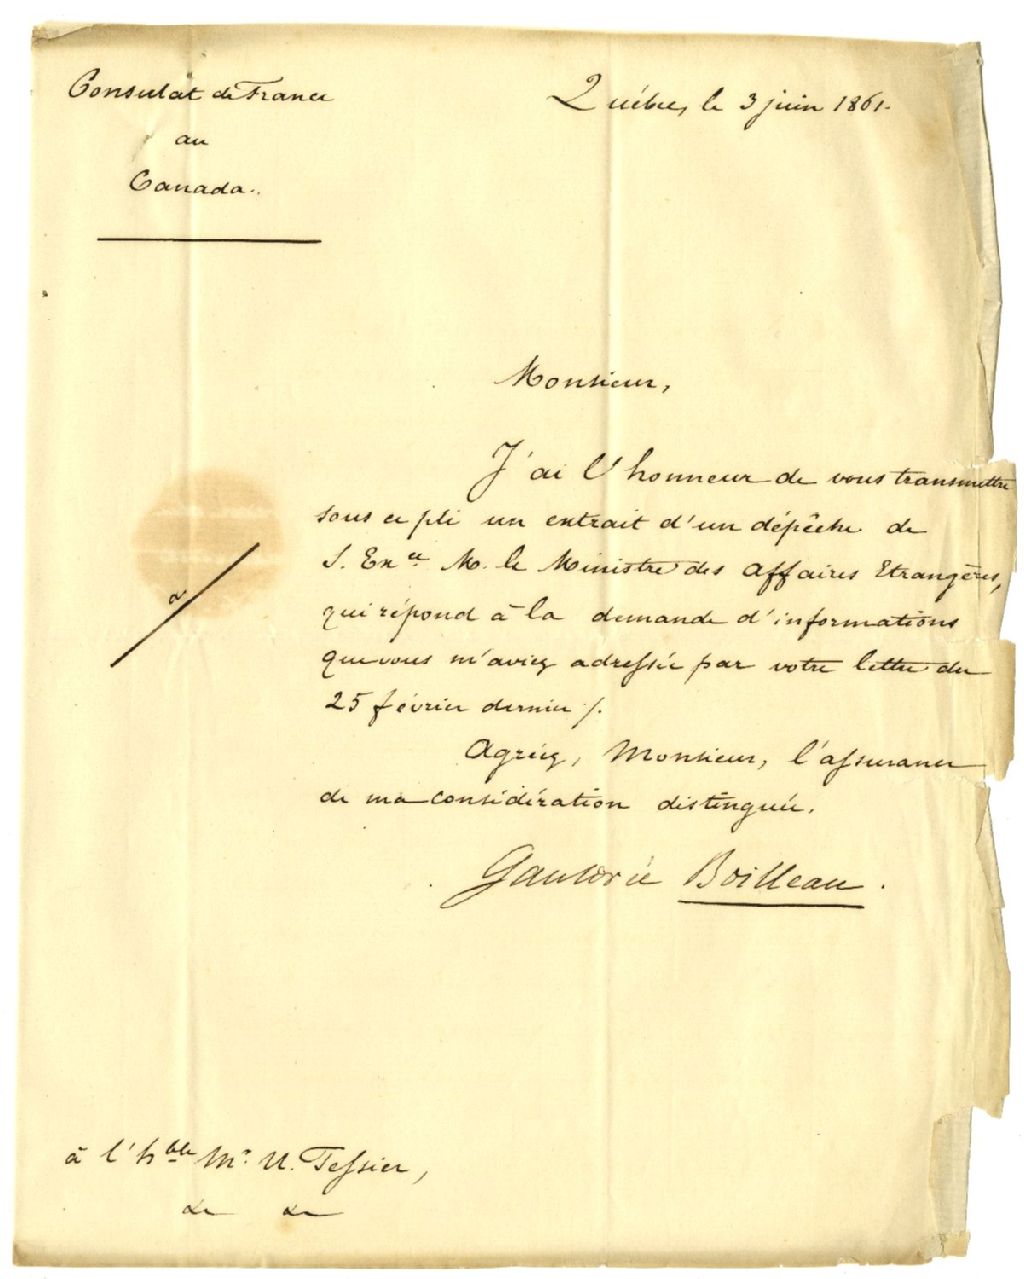 Consulat de France
au
Canada.
Québec, le 3 juin 1861.
Monsieur,
J'ai l'honneur de vous transmettre
sous ce pli un extrait d'un dépêche de
S. Exce M. le Ministre des Affaires Etrangères,
qui répond à la demande d'informations
que vous m'aviez adressée par votre lettre du
25 février dernier /.
Agréez, Monsieur, l'assurance
de ma considération distinguée.
Gauldrée Boilleau.
à l'hble Mr. U. Tessier,